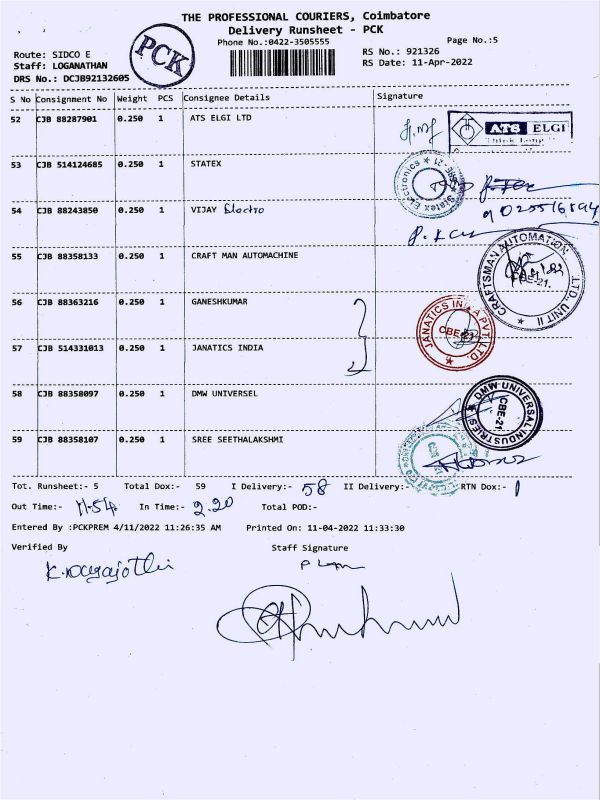 THE PROFESSIONAL COURIERS, Coimbatore
Delivery Runsheet - PCK
Phone No.:0422-3505555
Page No.:5
PCK
Route: SIDCO E
RS No.: 921326
Staff: LOGANATHAN
RS Date: 11-Apr-2022
DRS No.: DCJB92132605
S No Consignment No Weight PCS Consignee Details Signature
52 CJB 88287901 0.250 1 ATS ELGI LTD
ATS ELGI
53 CJB 514124685 0.250 1 STATEX
Statex Electronics * CBE-21 *
54 CJB 88243850 0.250 1 VIJAY Electro
55 CJB 88358133 0.250 1 CRAFT MAN AUTOMACHINE
CRAFTSMAN AUTOMATION LTD. UNIT II
CBE-21.
56 CJB 88363216 0.250 1 GANESHKUMAR
57 CJB 514331013 0.250 1 JANATICS INDIA
JANATICS INDIA PVT. LTD.
CBE-21
58 CJB 88358097 0.250 1 DMW UNIVERSEL
DMW UNIVERSAL INDUSTRIES
CBE-21
59 CJB 88358107 0.250 1 SREE SEETHALAKSHMI
Tot. Runsheet:- 5 Total Dox:- 59 I Delivery:- 58 II Delivery:- RTN Dox:- 1
Out Time:- 11.54 In Time:- 2.20 Total POD:-
Entered By :PCKPREM 4/11/2022 11:26:35 AM Printed On: 11-04-2022 11:33:30
Verified By Staff Signature
K. Nagajothi